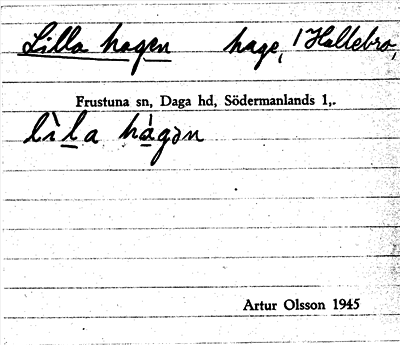 Lilla hagen hage, 1 Hallebro,
Frustuna sn, Daga hd, Södermanlands l,.
lìl̲a hà̲gən
Artur Olsson 1945